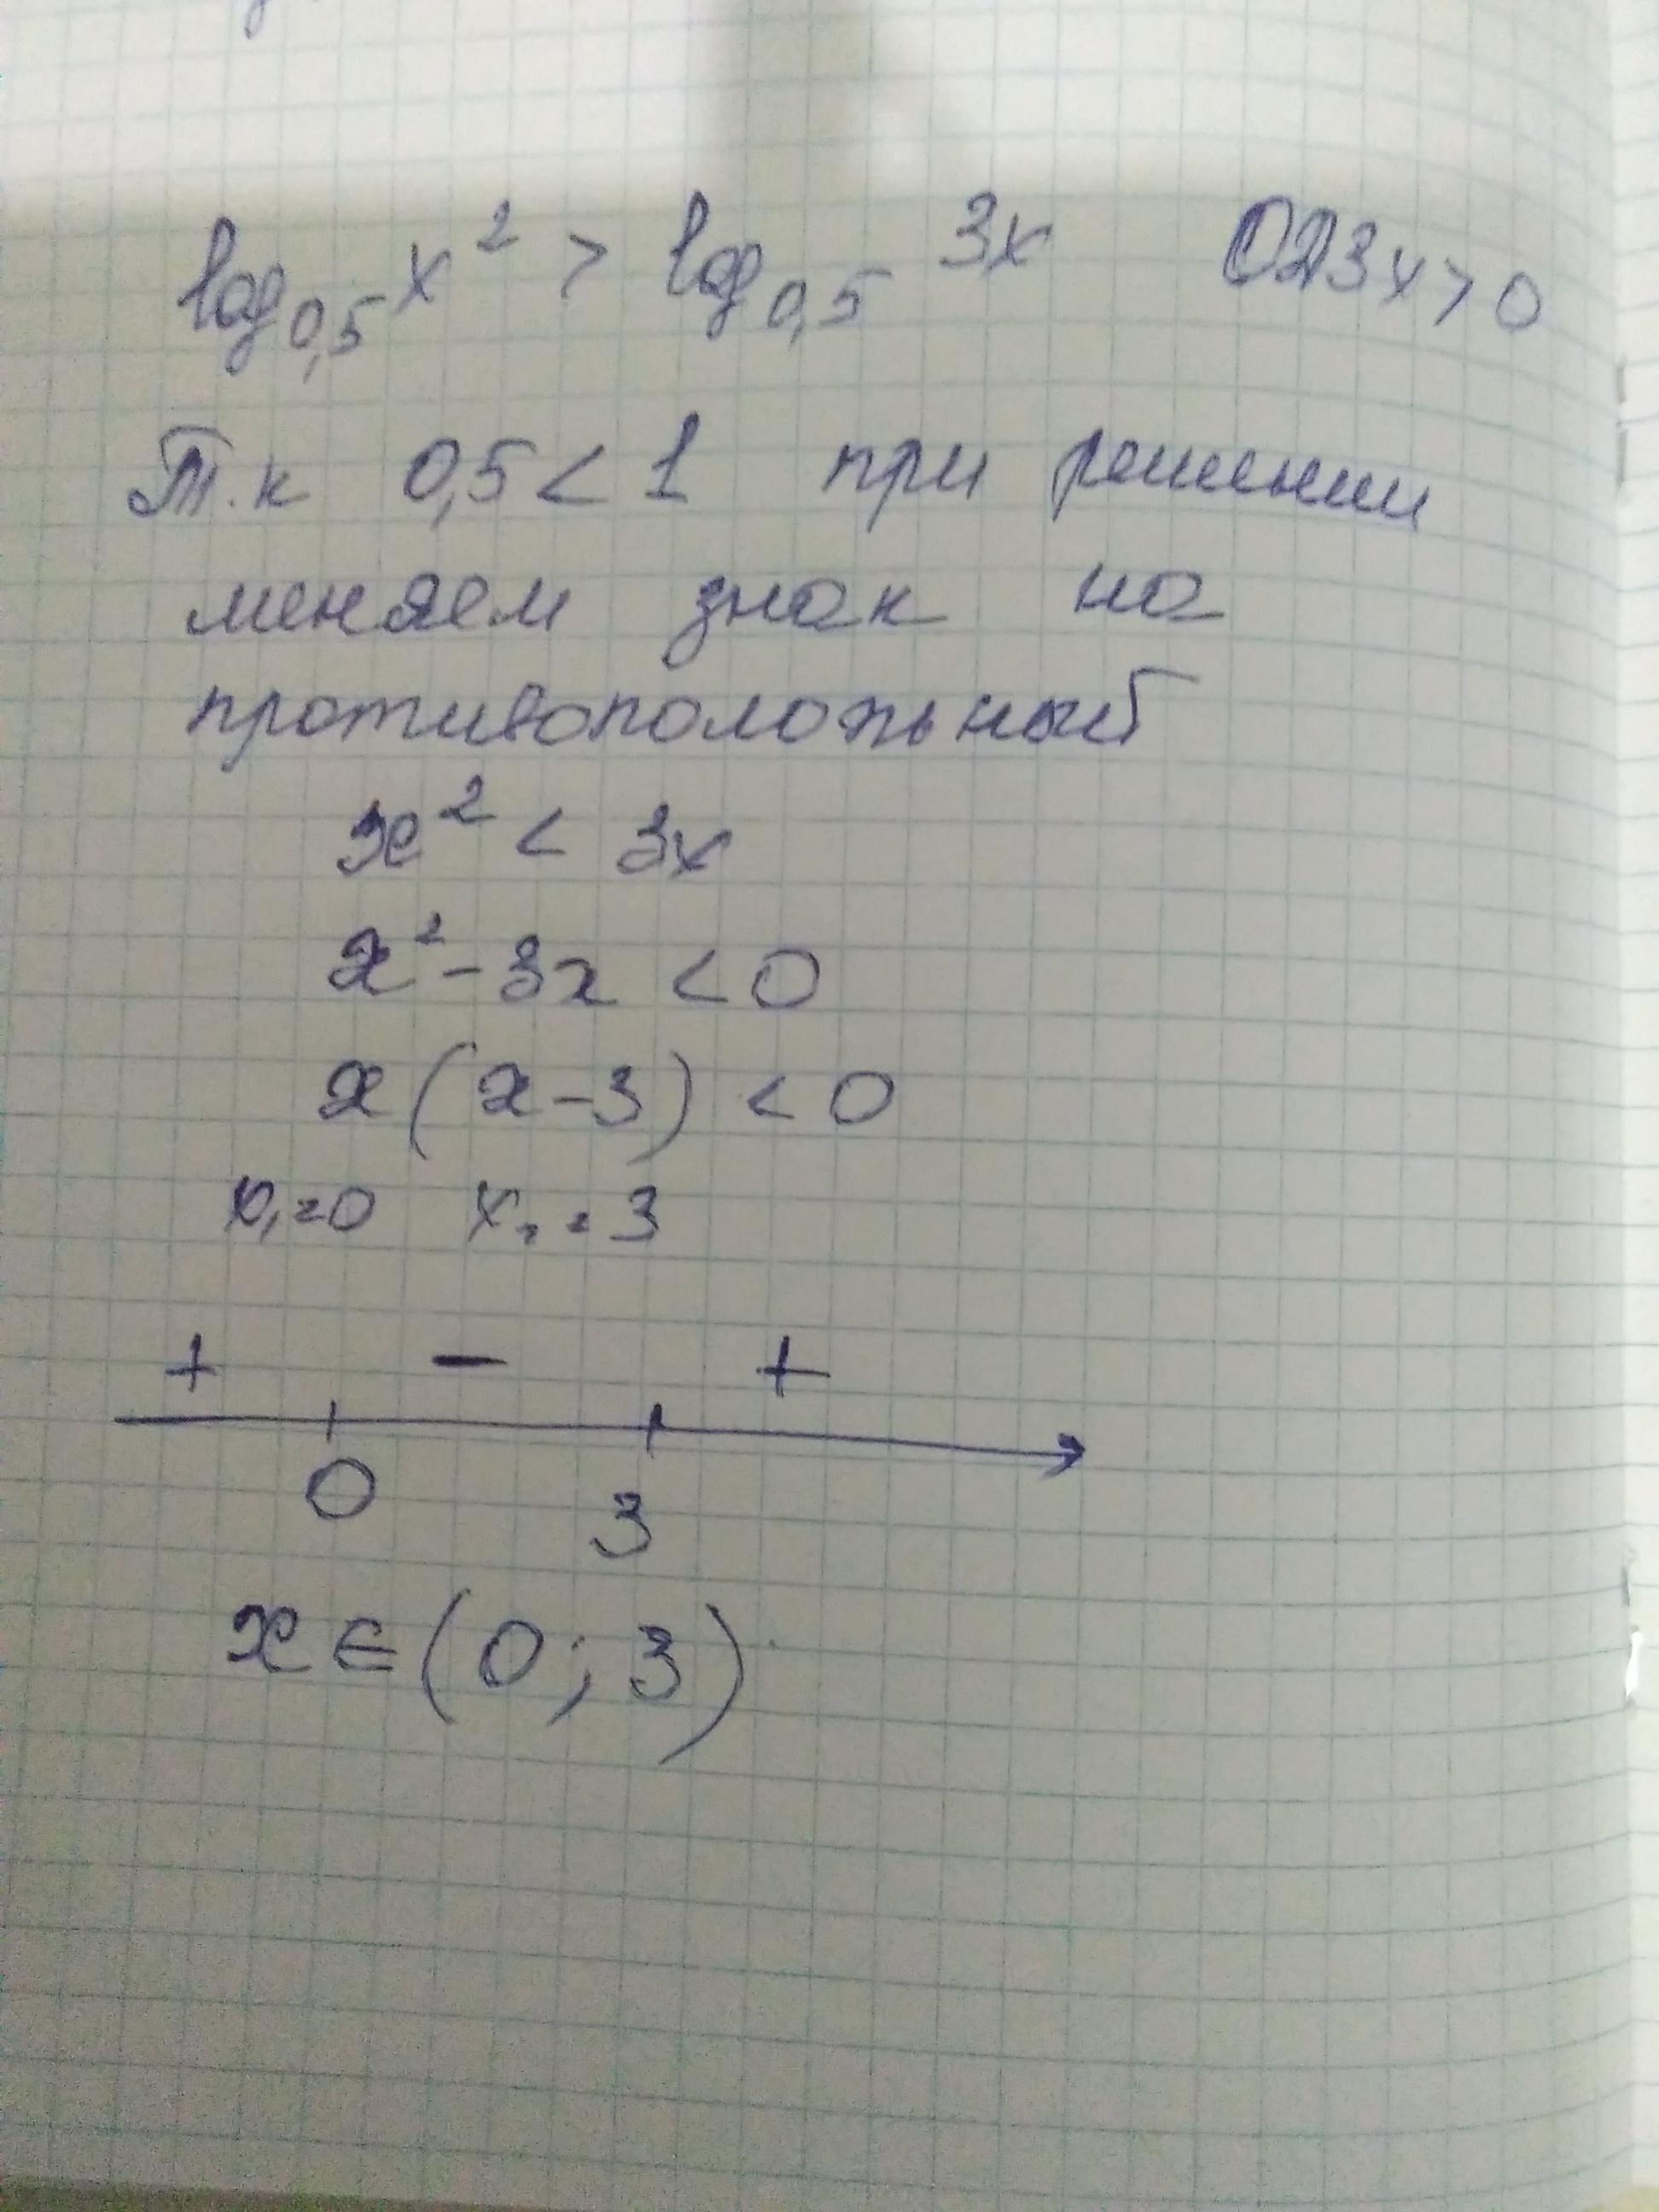 log₀,₅ x² > log₀,₅ 3x ОДЗ x > 0
Т.к 0,5 < 1 при решении
меняем знак на
противоположный
x² < 3x
x² - 3x < 0
x(x - 3) < 0
x₁ = 0 x₂ = 3
+ - +
0 3
x ∈ (0; 3)